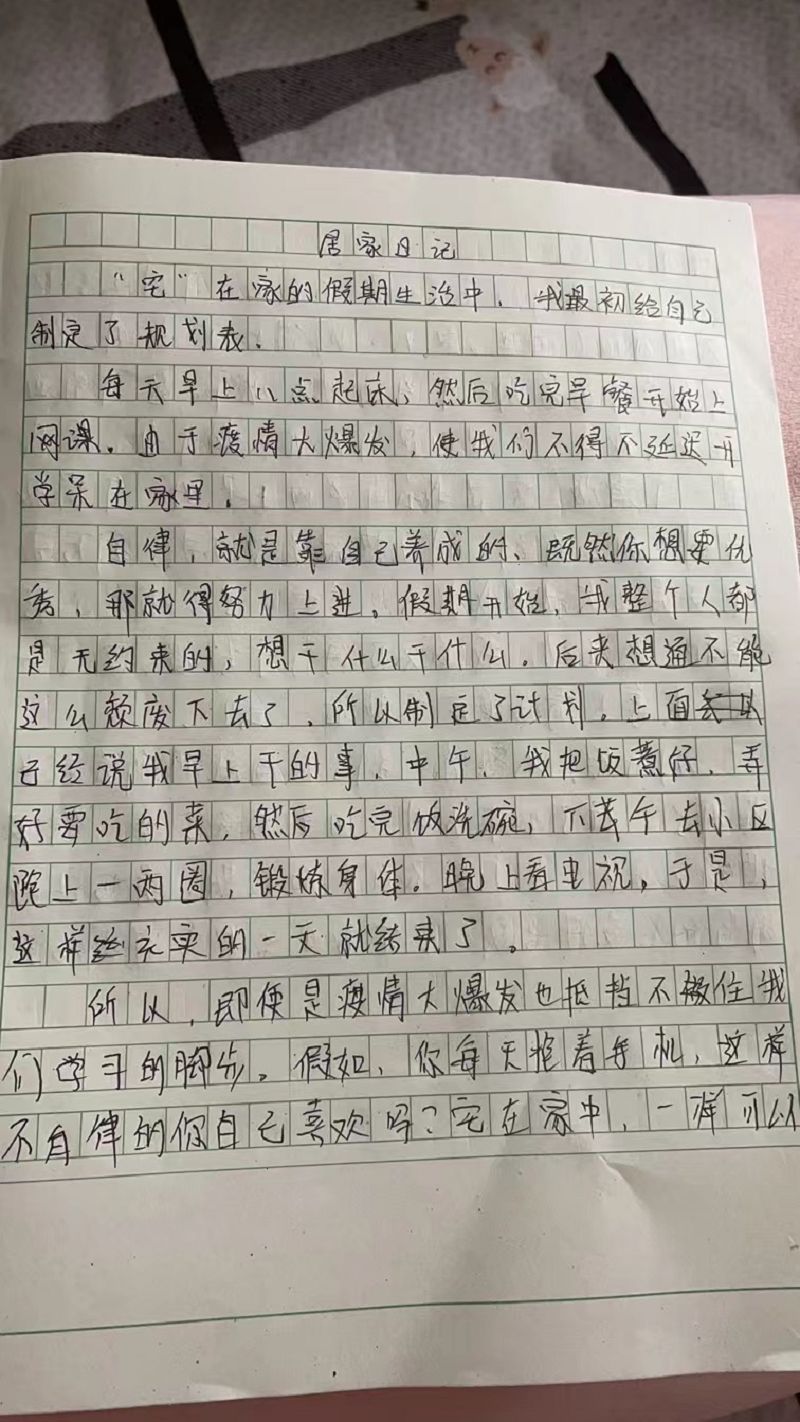 居家日记
“宅”在家的假期生活中，我最初给自己
制定了规划表。
每天早上八点起床，然后吃完早餐开始上
网课。由于疫情大爆发，使我们不得不延迟开
学呆在家里。
自律，就是靠自己养成的、既然你想要优
秀，那就得努力上进。假期开始，我整个人都
是无约束的，想干什么干什么。后来想通不能
这么颓废下去了，所以制定了计划。上面
已经说我早上干的事，中午，我把饭煮好，弄
好要吃的菜，然后吃完饭洗碗，下午去小区
跑上一两圈，锻炼身体。晚上看电视。于是，
这样充实的一天就结束了。
所以，即使是疫情大爆发也抵挡不住我
们学习的脚步。假如，你每天抱着手机，这样
不自律的你自己喜欢吗？宅在家中，一样可以